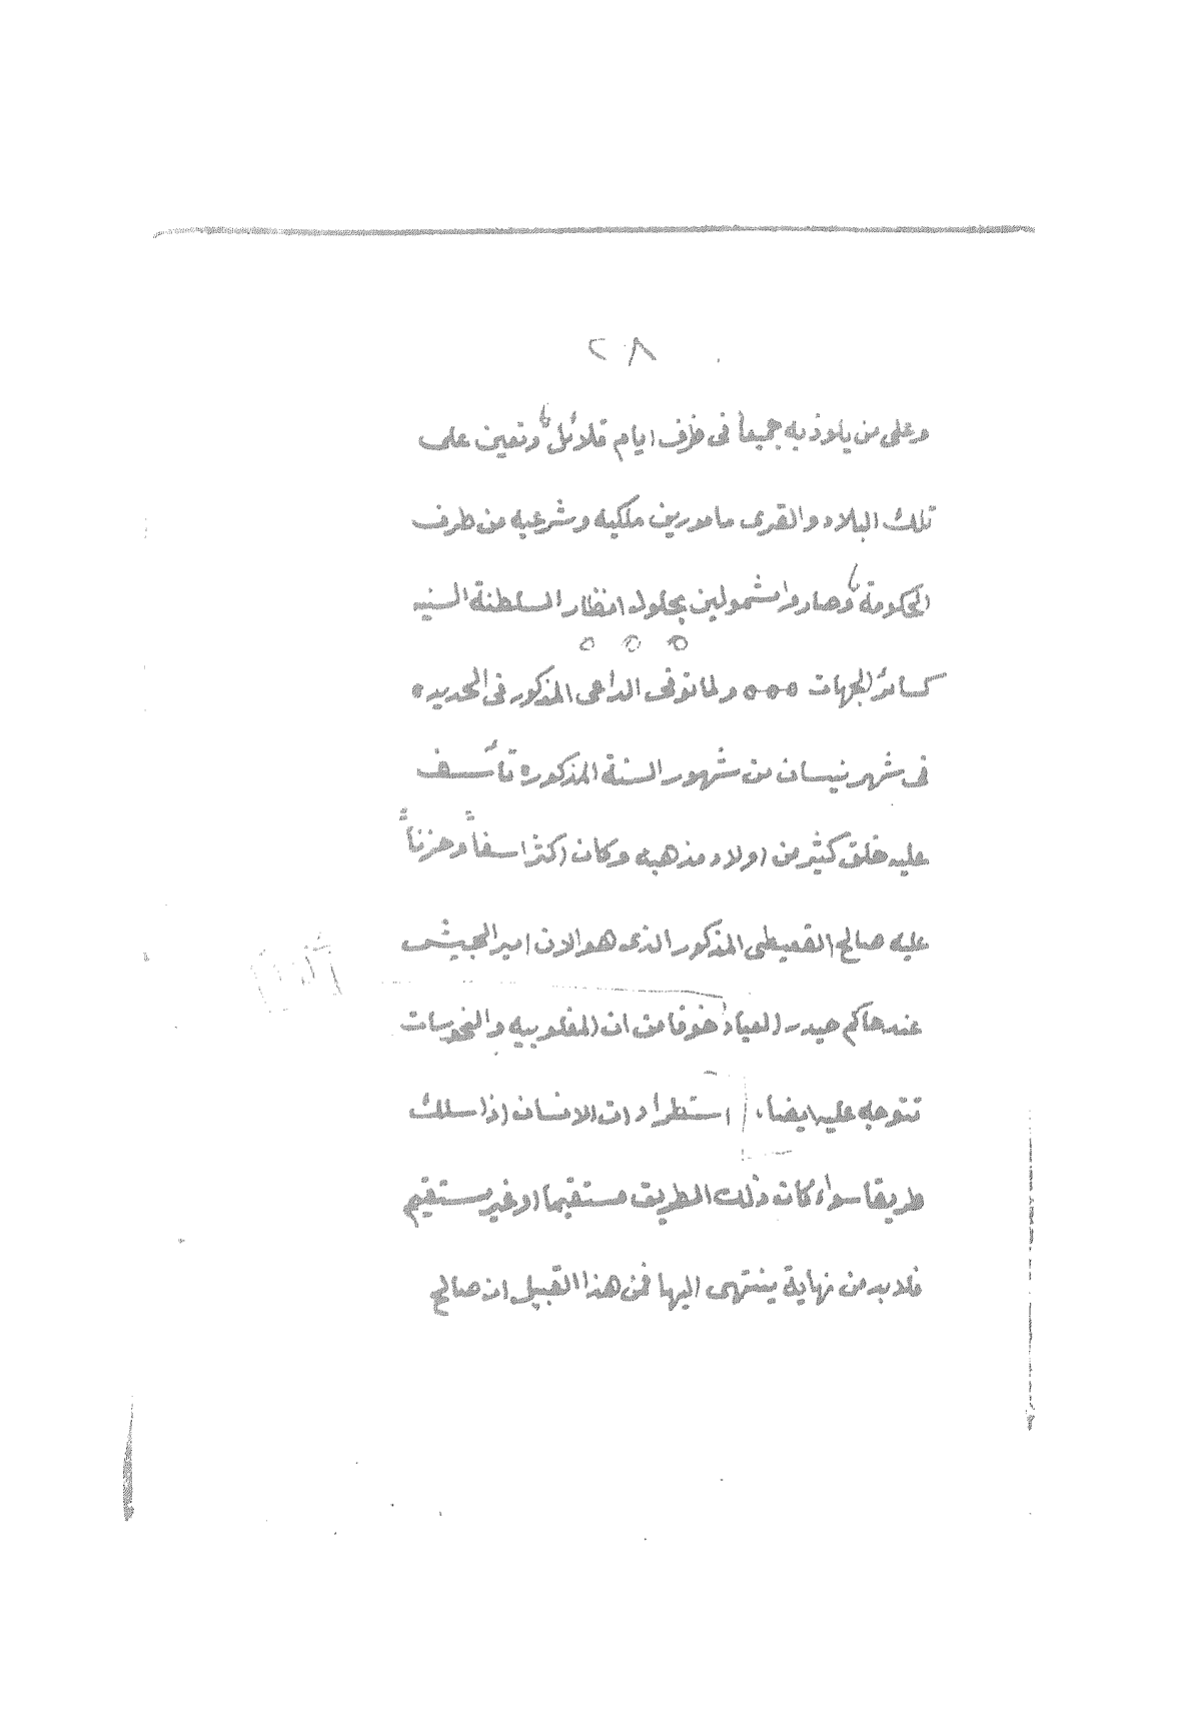 ٢٨
وعلى من يلوذ به جميعاً فى ظرف ايام قلائل وتعين على
تلك البلاد والقرى مامورين ملكيه وشرعيه من طرف
الحكومة وصاروا مشمولين بحلول انظار السلطنة السنيه
كسائر الجهات ٥٥٥ ولما توفى الداعى المذكور فى الحديده
فى شهر نيسان من شهور السنة المذكوره تأسف
عليه خلق كثير من اولاد مذهبه وكان اكثر اسفاً وحزناً
عليه صالح القعيطى المذكور الذى هو الان امير الجيش
عند حاكم حيدر اباد خوفا من ان المغلوبيه والنحوسات
تتوجه عليه ايضا، استطراد ان الانسان اذا سلك
طريقا سواء كان ذلك الطريق مستقيما او غير مستقيم
فلا بد من نهاية ينتهى اليها فمن هذا القبيل ان صالح